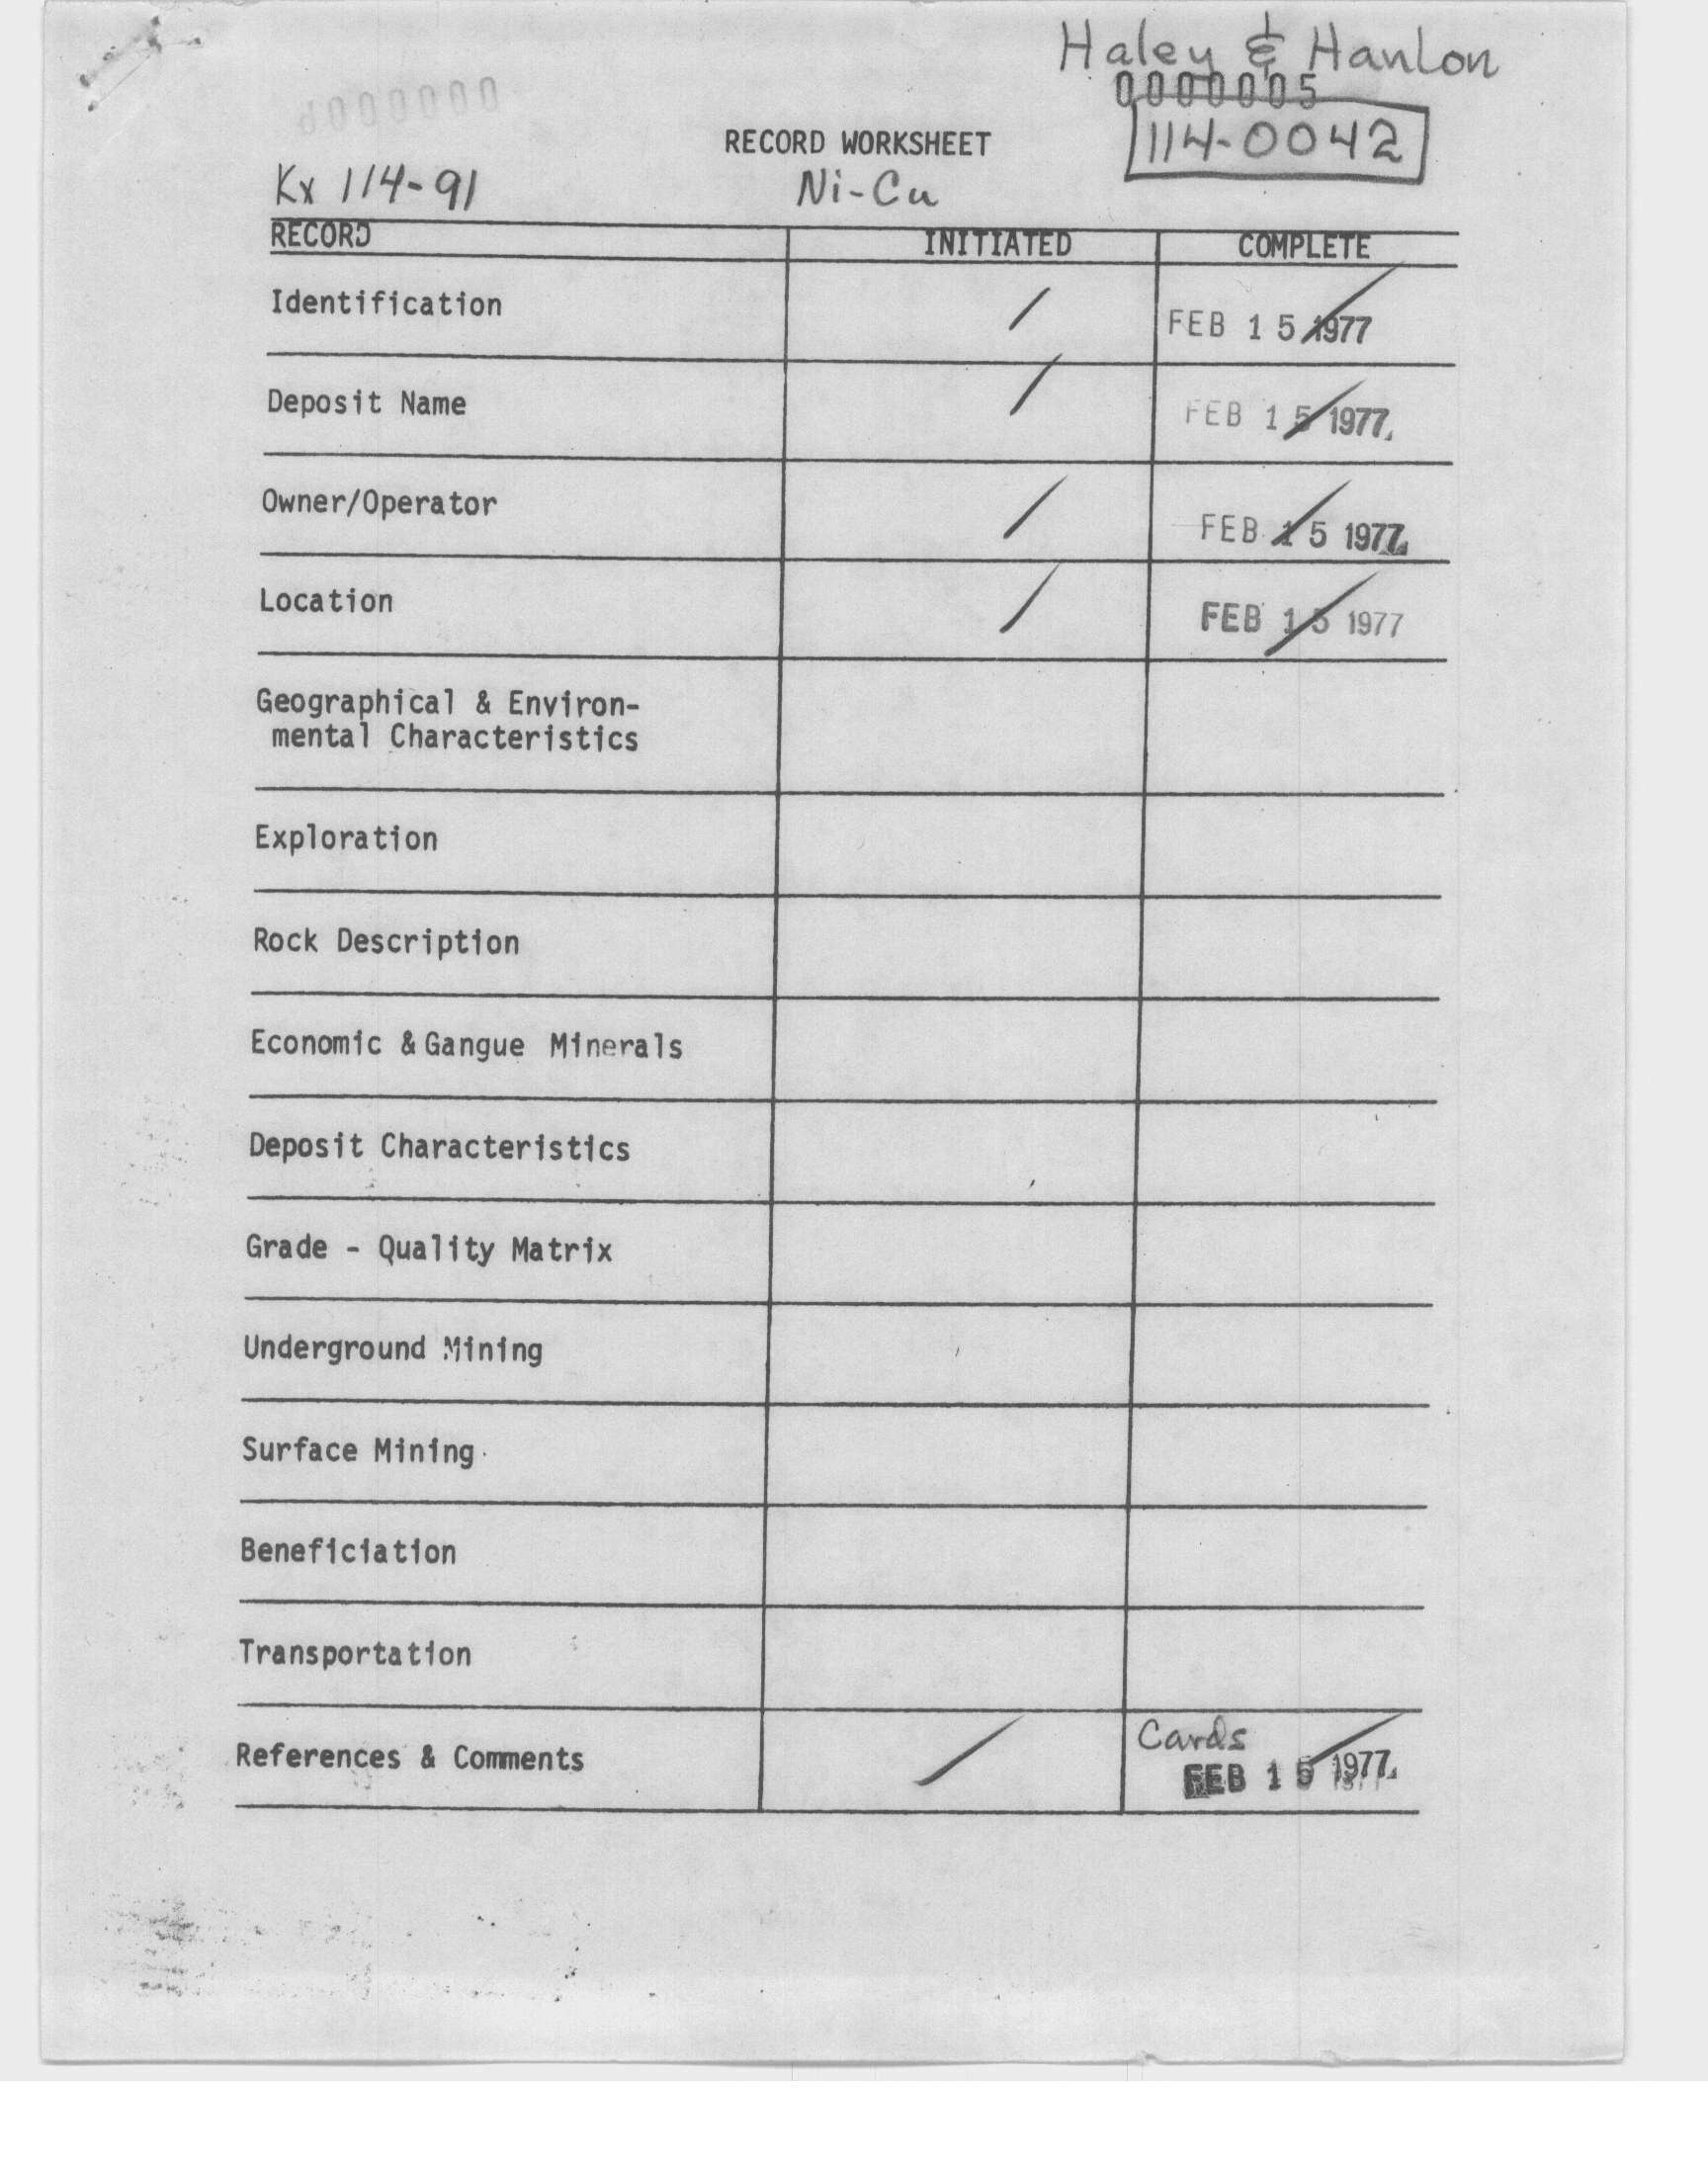 Haley & Hanlon
0000005
RECORD WORKSHEET
114-0042
Kx 114-91
Ni-Cu
RECORD INITIATED COMPLETE
Identification / FEB 15 1977
Deposit Name / FEB 15 1977
Owner/Operator / FEB 15 1977
Location / FEB 15 1977
Geographical & Environ-
mental Characteristics
Exploration
Rock Description
Economic & Gangue Minerals
Deposit Characteristics
Grade - Quality Matrix
Underground Mining
Surface Mining
Beneficiation
Transportation
Cards
References & Comments / FEB 15 1977